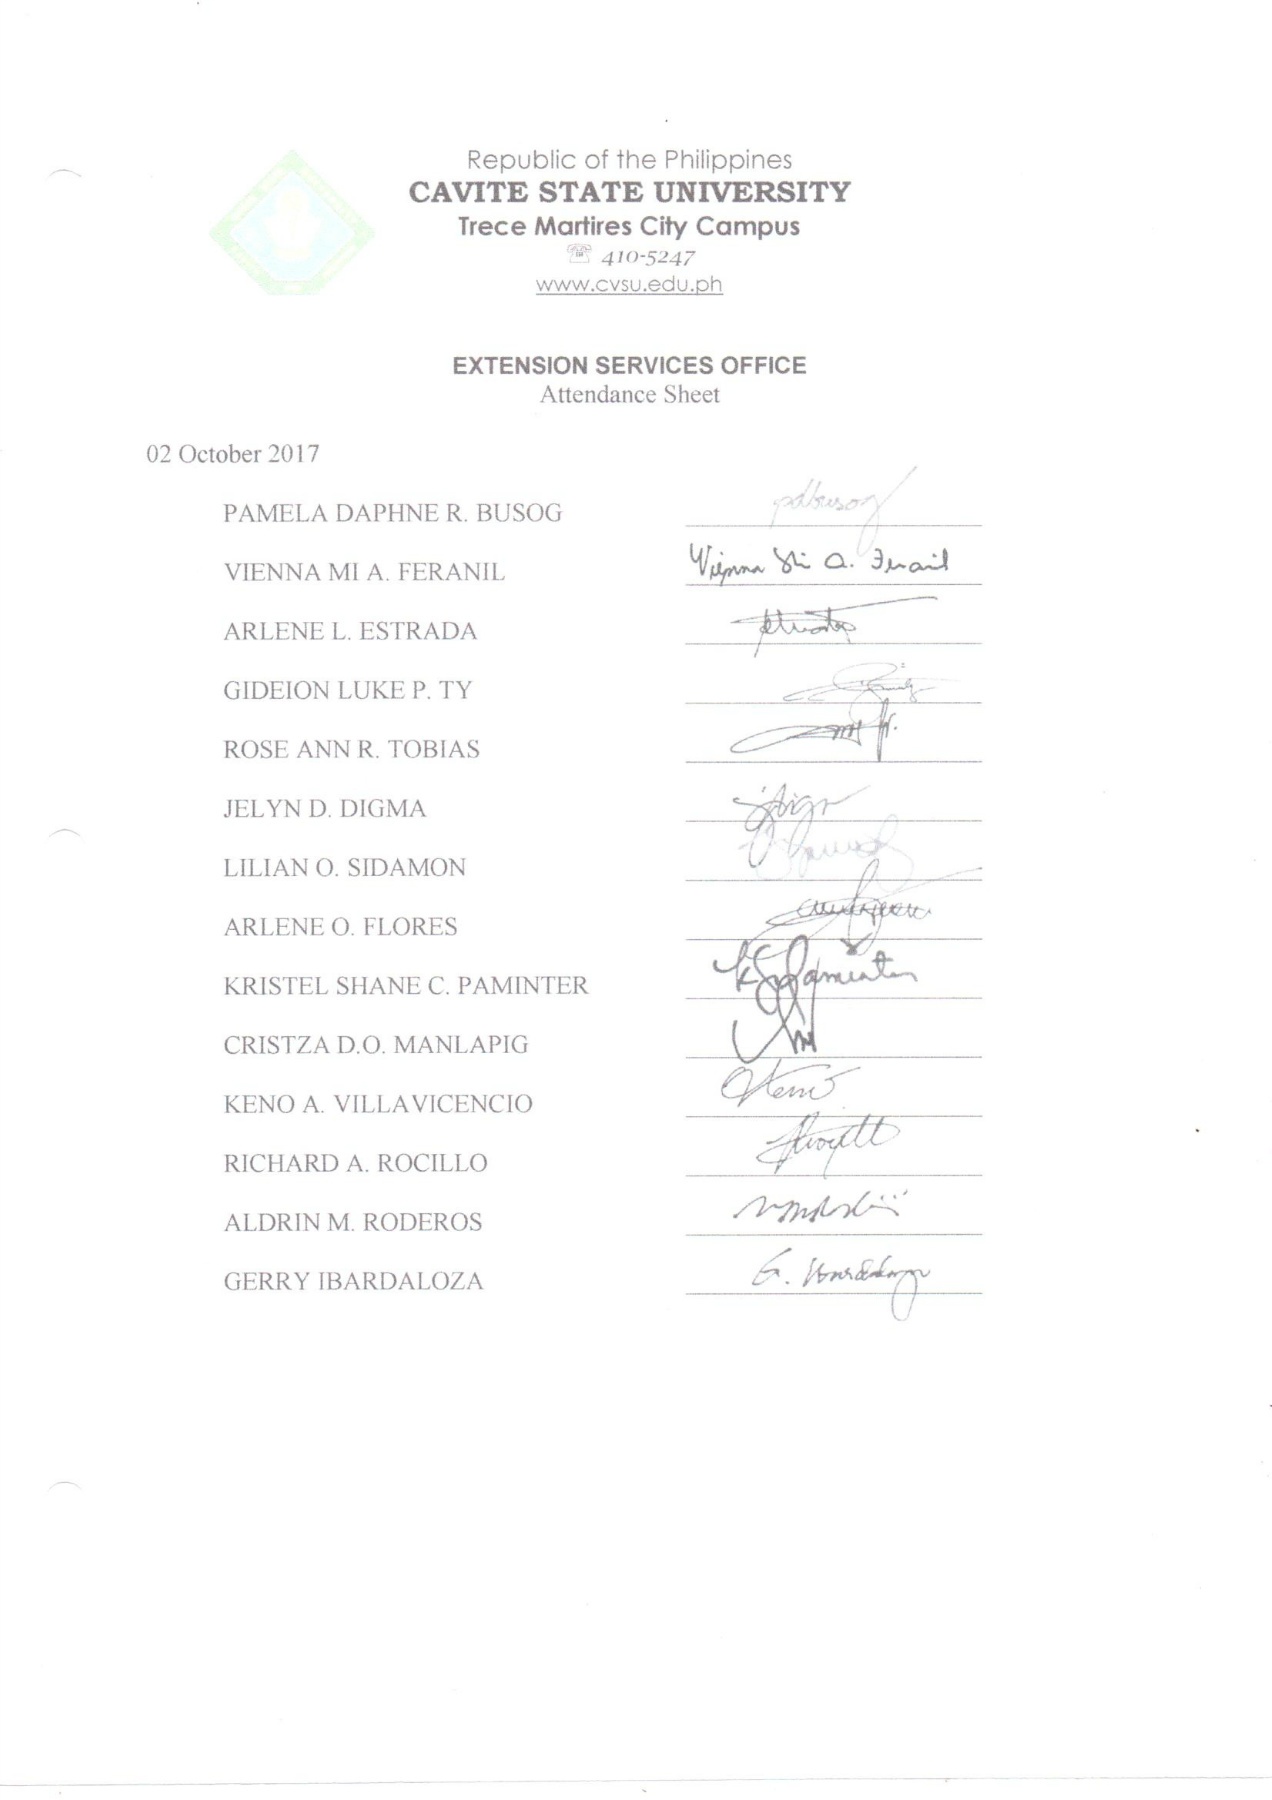 Republic of the Philippines
CAVITE STATE UNIVERSITY
Trece Martires City Campus
☏ 410-5247
www.cvsu.edu.ph
EXTENSION SERVICES OFFICE
Attendance Sheet
02 October 2017
PAMELA DAPHNE R. BUSOG pdbusog
VIENNA MI A. FERANIL Vienna Mi A. Feranil
ARLENE L. ESTRADA
GIDEION LUKE P. TY
ROSE ANN R. TOBIAS
JELYN D. DIGMA
LILIAN O. SIDAMON
ARLENE O. FLORES
KRISTEL SHANE C. PAMINTER KSPaminter
CRISTZA D.O. MANLAPIG
KENO A. VILLAVICENCIO
RICHARD A. ROCILLO
ALDRIN M. RODEROS
GERRY IBARDALOZA G. Ibardaloza